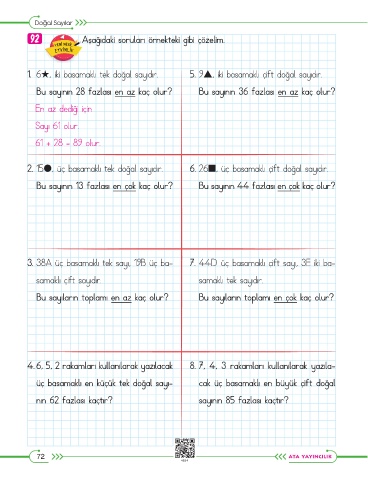 Doğal Sayılar
92
YENİ NESİL
ETKİNLİK
Aşağıdaki soruları örnekteki gibi çözelim.
1. 6★, iki basamaklı tek doğal sayıdır.
Bu sayının 28 fazlası en az kaç olur?
En az dediği için
Sayı 61 olur.
61 + 28 = 89 olur.
5. 9▲, iki basamaklı çift doğal sayıdır.
Bu sayının 36 fazlası en az kaç olur?
2. 15●, üç basamaklı tek doğal sayıdır.
Bu sayının 13 fazlası en çok kaç olur?
6. 26■, üç basamaklı çift doğal sayıdır.
Bu sayının 44 fazlası en çok kaç olur?
3. 38A üç basamaklı tek sayı, 19B üç ba-
samaklı çift sayıdır.
Bu sayıların toplamı en az kaç olur?
7. 44D üç basamaklı çift sayı, 3E iki ba-
samaklı tek sayıdır.
Bu sayıların toplamı en çok kaç olur?
4. 6, 5, 2 rakamları kullanılarak yazılacak
üç basamaklı en küçük tek doğal sayı-
nın 62 fazlası kaçtır?
8. 7, 4, 3 rakamları kullanılarak yazıla-
cak üç basamaklı en büyük çift doğal
sayının 85 fazlası kaçtır?
72
ATA YAYINCILIK